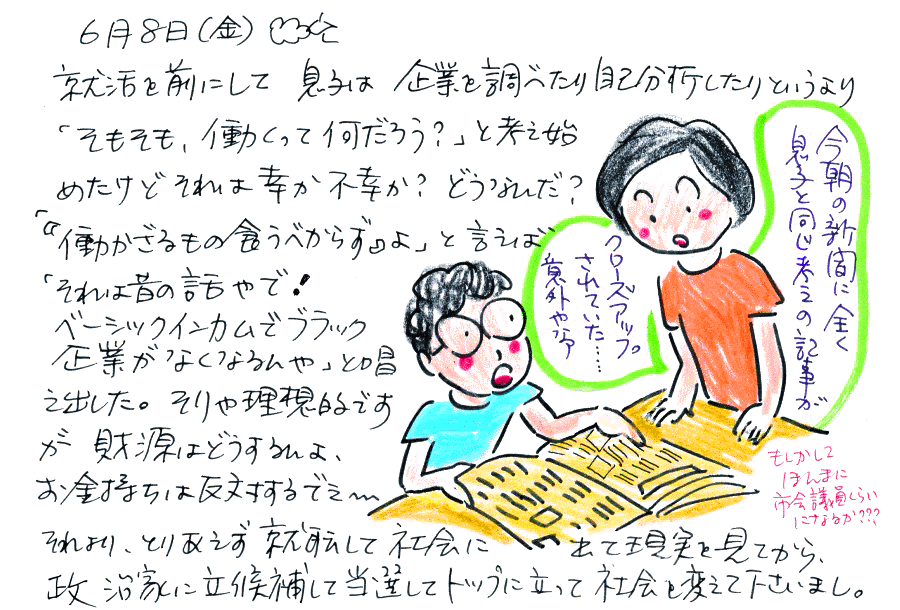 6月8日(金)
就活を前にして 息子は 企業を調べたり自己分析したりというより
「そもそも、働くって何だろう?」と考え始
めたけど それは幸か不幸か? どうなんだ?
「『働かざるもの食うべからず』よ」と言えば
「それは昔の話やで!
ベーシックインカムでブラック
企業がなくなるんや」と唱
え出した。そりゃ理想的です
が 財源はどうするんよ、
お金持ちは反対するでえ〜
それより、とりあえず就職して社会に 出て現実を見てから、
政治家に立候補して当選してトップに立って社会を変えて下さいまし。
今朝の新聞に全く
息子と同じ考えの記事が
クローズアップ
されていた……
意外やな
もしかして
ほんまに
市会議員くらい
になるか???